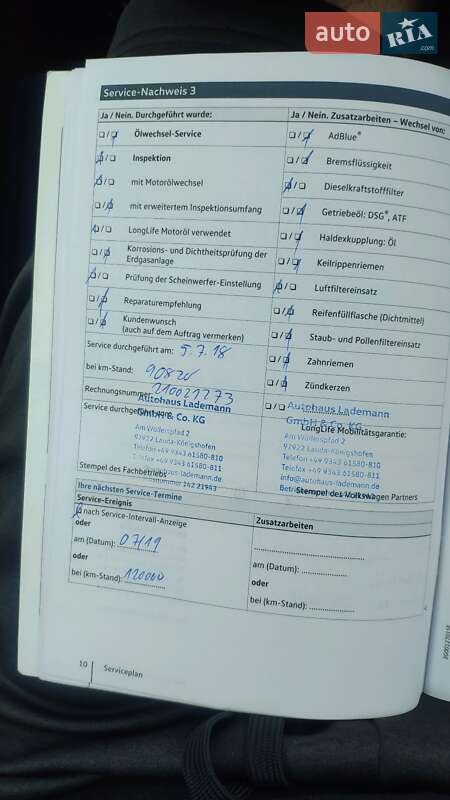 auto RIA .com
Service-Nachweis 3
Ja / Nein. Durchgeführt wurde:
Ölwechsel-Service
Inspektion
mit Motorölwechsel
mit erweitertem Inspektionsumfang
LongLife Motoröl verwendet
Korrosions- und Dichtheitsprüfung der
Erdgasanlage
Prüfung der Scheinwerfer-Einstellung
Reparaturempfehlung
Kundenwunsch
(auch auf dem Auftrag vermerken)
Service durchgeführt am: 5.7.18
bei km-Stand:
Rechnungsnummer:
Autohaus Lademann
GmbH & Co. KG
Service durchgeführt
Am Wöllerspfad 2
97922 Lauda-Königshofen
Telefon +49 9343 61580-810
Telefax +49 9343 61580-811
info@autohaus-lademann.de
Stempel des Fachbetriebs
Ja / Nein. Zusatzarbeiten – Wechsel von:
AdBlue®
Bremsflüssigkeit
Dieselkraftstofffilter
Getriebeöl: DSG®, ATF
Haldexkupplung: Öl
Keilrippenriemen
Luftfiltereinsatz
Reifenfüllflasche (Dichtmittel)
Staub- und Pollenfiltereinsatz
Zahnriemen
Zündkerzen
Autohaus Lademann
GmbH & Co. KG
LongLife Mobilitätsgarantie:
Am Wöllerspfad 2
97922 Lauda-Königshofen
Telefon +49 9343 61580-810
Telefax +49 9343 61580-811
info@autohaus-lademann.de
Stempel des Volkswagen Partners
Ihre nächsten Service-Termine
Service-Ereignis
nach Service-Intervall-Anzeige
oder
am (Datum): 07/19
oder
bei (km-Stand): 120000
Zusatzarbeiten
am (Datum):
oder
bei (km-Stand):
10 Serviceplan